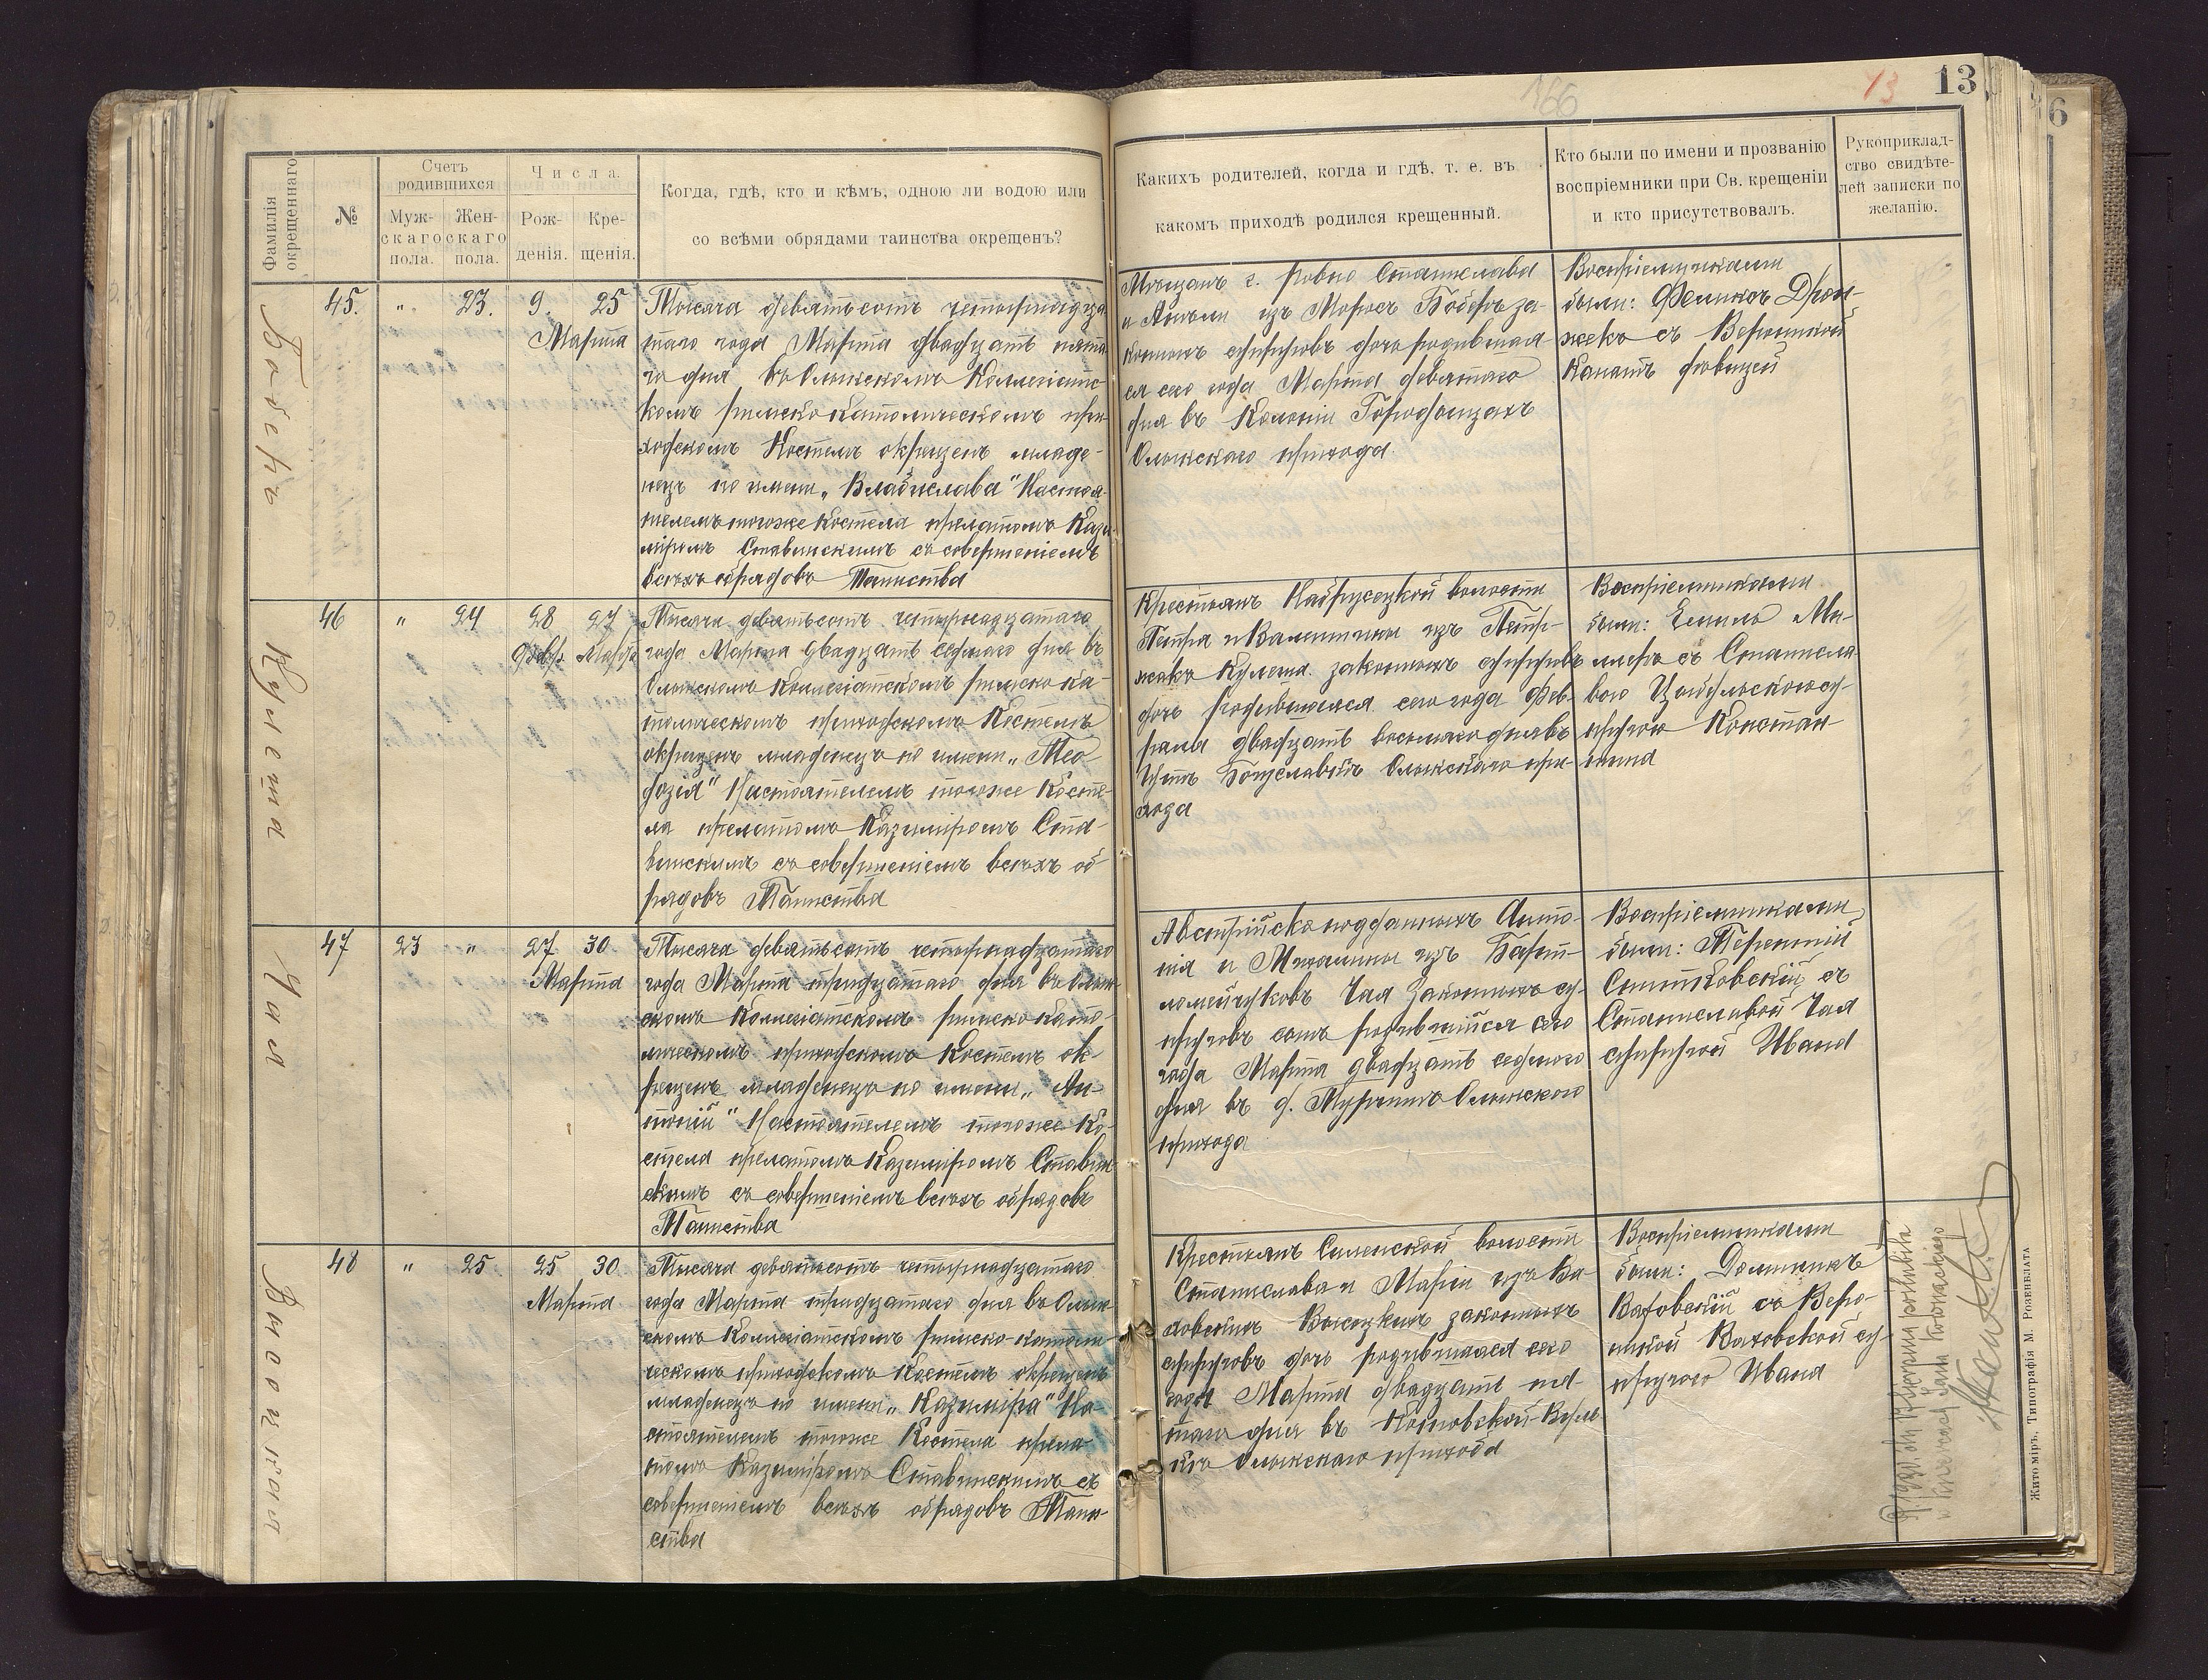 166
13
13
6
Фамилія окрещеннаго
№
Счетъ родившихся
Муж-
скаго
пола.
Жен-
скаго
пола.
Числа.
Рож-
денія.
Кре-
щенія.
Когда, гдѣ, кто и кѣмъ, одною ли водою или
со всѣми обрядами таинства окрещенъ?
Какихъ родителей, когда и гдѣ, т. е. въ
какомъ приходѣ родился крещенный.
Кто были по имени и прозванію
воспріемники при Св. крещеніи
и кто присутствовалъ.
Рукоприклад-
ство свидѣте-
лей записки по
желанію.
Боберъ
45. " 23. 9. 25
Марта
Тысяча девятьсотъ четырнадца
таго года Марта двадцать пята
го дня въ Олыкскомъ Коллегіатс-
комъ римско католическомъ при-
ходскомъ Костелѣ окрещенъ младе-
нецъ по имени „Владислава" Настоя-
телемъ того же Костела прелатомъ Кази-
міромъ Ставинскимъ съ совершеніемъ
всѣхъ обрядовъ Таинства
Мѣщанъ г. Ровно Станислава
и Анели изъ Моросъ Боберъ за-
конныхъ супруговъ дочь родившая
ся сего года Марта девятаго
дня въ Колоніи Городыщахъ
Олыкскаго прихода.
Воспріемниками
были: Феликсъ Дрон-
жекъ съ Вероникой
Канатъ дѣвицей
Кулеша
46 " 24 28 27
Февр. Марта
Тысяча девятьсотъ четырнадцатаго
года Марта двадцать седьмаго дня въ
Олыкскомъ Коллегіатскомъ римско ка-
толическомъ приходскомъ Костелѣ
окрещенъ младенецъ по имени „Тео-
дозія" Настоятелемъ того же Косте-
ла прелатомъ Казиміромъ Ста-
винскимъ съ совершеніемъ всѣхъ об-
рядовъ Таинства
Крестьянъ волости
Петра и Валентины изъ Петр-
жакъ Кулеша законныхъ супруговъ
дочь родившаяся сего года Фев-
раля двадцать восьмаго дня въ
Олыкскаго при-
хода
Воспріемниками
были: Емиль Ми-
ллеръ съ Станисла-
вою су-
пругою Констан-
тина
Чая
47 23 " 27 30
Марта
Тысяча девятьсотъ четырнадцатаго
года Марта тридцатаго дня въ Олык-
скомъ Коллегіатскомъ римско като-
лическомъ приходскомъ Костелѣ ок-
рещенъ младенецъ по имени „Ан-
тоній" Настоятелемъ того же Ко-
стела прелатомъ Казиміромъ Ставин-
скимъ съ совершеніемъ всѣхъ обрядовъ
Таинства
Австрійско подданныхъ Анто-
нія и Михалины изъ Барт-
ломейчуковъ Чая законныхъ су-
пруговъ сынъ родившійся сего
года Марта двадцать седьмого
дня въ д. Олыкского
прихода
Воспріемниками
были: Терентій
Снитковскій съ
Станиславой Чая
супругой Ивана
Высоцкая
48 " 25 25 30
Марта
Тысяча девятьсотъ четырнадцатаго
года Марта тридцатаго дня въ Олык-
скомъ Коллегіатскомъ римско-католи-
ческомъ приходскомъ Костелѣ окрещенъ
младенецъ по имени „Казимира" На-
стоятелемъ того же Костела прела-
томъ Казиміромъ Ставинскимъ съ
совершеніемъ всѣхъ обрядовъ Таин-
ства
Крестьянъ Силенской волости
Станислава и Маріи изъ Ва-
ховскихъ Высоцкихъ законныхъ
супруговъ дочь родившаяся сего
года Марта двадцать пя-
таго дня въ
Олыкскаго прихода
Воспріемниками
были: Доминикъ
Ваховскій съ Веро-
никой Ваховской су-
пругою Ивана
Житоміръ, Типографія М. Розенблата